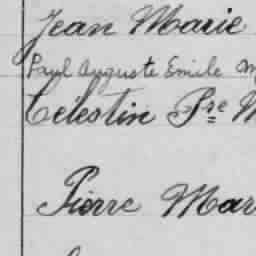 Jean Marie
Paul Auguste Emile
Célestin Pre M
Pierre Mar